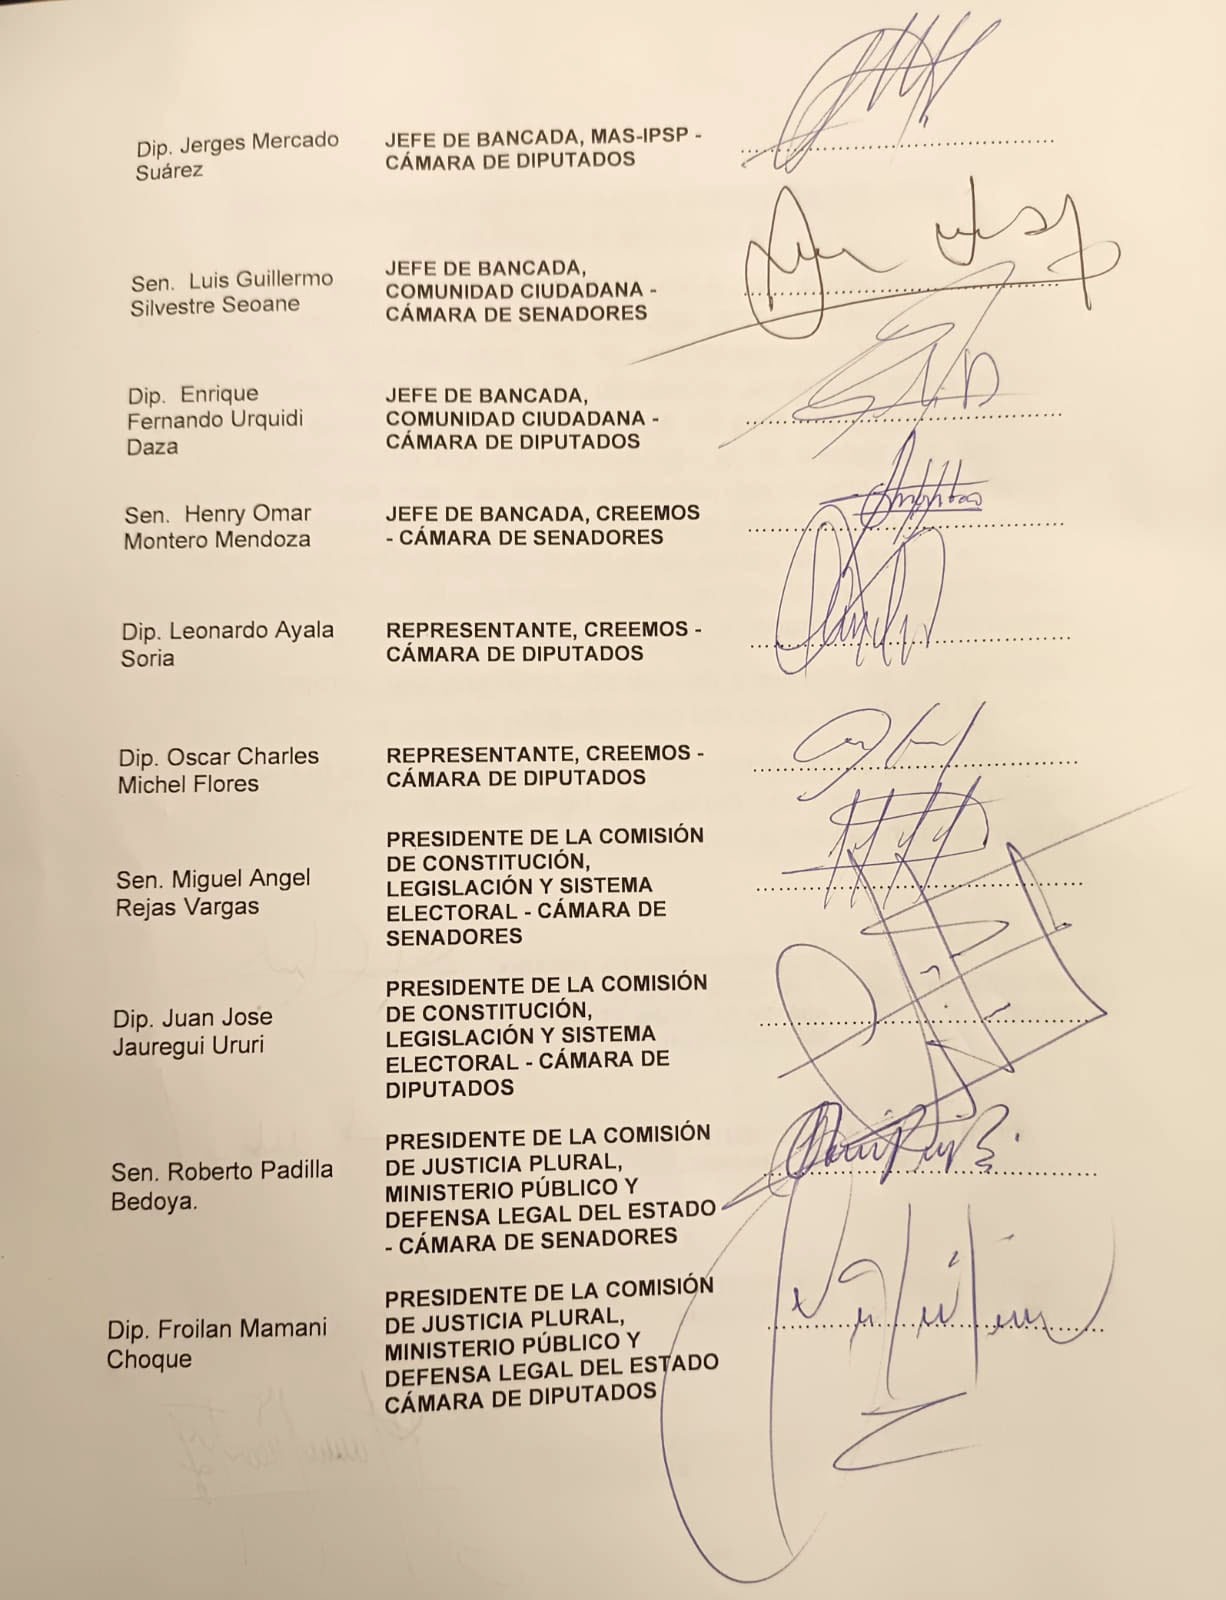 Dip. Jerges Mercado
Suárez
JEFE DE BANCADA, MAS-IPSP -
CÁMARA DE DIPUTADOS
Sen. Luis Guillermo
Silvestre Seoane
JEFE DE BANCADA,
COMUNIDAD CIUDADANA -
CÁMARA DE SENADORES
Dip. Enrique
Fernando Urquidi
Daza
JEFE DE BANCADA,
COMUNIDAD CIUDADANA -
CÁMARA DE DIPUTADOS
Sen. Henry Omar
Montero Mendoza
JEFE DE BANCADA, CREEMOS
- CÁMARA DE SENADORES
Dip. Leonardo Ayala
Soria
REPRESENTANTE, CREEMOS -
CÁMARA DE DIPUTADOS
Dip. Oscar Charles
Michel Flores
REPRESENTANTE, CREEMOS -
CÁMARA DE DIPUTADOS
Sen. Miguel Angel
Rejas Vargas
PRESIDENTE DE LA COMISIÓN
DE CONSTITUCIÓN,
LEGISLACIÓN Y SISTEMA
ELECTORAL - CÁMARA DE
SENADORES
Dip. Juan Jose
Jauregui Ururi
PRESIDENTE DE LA COMISIÓN
DE CONSTITUCIÓN,
LEGISLACIÓN Y SISTEMA
ELECTORAL - CÁMARA DE
DIPUTADOS
Sen. Roberto Padilla
Bedoya.
PRESIDENTE DE LA COMISIÓN
DE JUSTICIA PLURAL,
MINISTERIO PÚBLICO Y
DEFENSA LEGAL DEL ESTADO
- CÁMARA DE SENADORES
Dip. Froilan Mamani
Choque
PRESIDENTE DE LA COMISIÓN
DE JUSTICIA PLURAL,
MINISTERIO PÚBLICO Y
DEFENSA LEGAL DEL ESTADO
CÁMARA DE DIPUTADOS